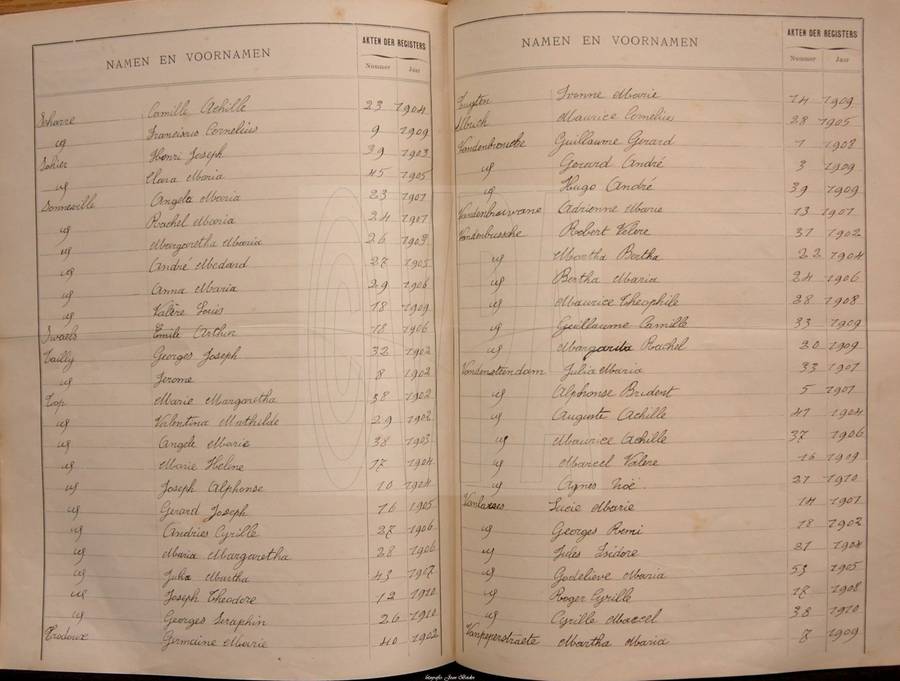 NAMEN EN VOORNAMEN AKTEN DER REGISTERS
Nummer Jaar
Scharre Camille Achille 23 1904
id Franciscus Cornelius 9 1909
Sohier Henri Joseph 39 1903
id Clara Maria 45 1905
Sonneville Angela Maria 23 1901
id Rachel Maria 24 1901
id Margaretha Maria 26 1903
id André Medard 27 1905
id Anna Maria 29 1906
id Valère Louis 18 1909
Swaels Emile Arthur 18 1906
Tailly Georges Joseph 32 1902
id Jerome 8 1902
Top Marie Margaretha 38 1902
id Valentina Mathilde 29 1902
id Angele Marie 38 1903
id Marie Helene 17 1904
id Joseph Alphonse 10 1904
id Gerard Joseph 16 1905
id Andries Cyrille 27 1906
id Maria Margaretha 28 1906
id Julia Martha 43 1907
id Joseph Theodore 12 1910
id Georges Seraphin 26 1910
Trodoux Germaine Marie 40 1902
NAMEN EN VOORNAMEN AKTEN DER REGISTERS
Nummer Jaar
Tuyten Ivonne Marie 14 1909
Ulrich Maurice Cornelius 28 1905
Vandenbroucke Guillaume Gerard 1 1908
id Gerard André 3 1909
id Hugo André 39 1909
Adrienne Marie 13 1901
Vandenbussche Robert Valere 31 1902
id Martha Bertha 22 1904
id Bertha Maria 24 1906
id Maurice Theophile 28 1908
id Guillaume Camille 33 1909
id Margarita Rachel 20 1909
Vandensteendam Julia Maria 33 1901
id Alphonse Prudent 5 1901
id Auguste Achille 41 1904
id Maurice Achille 37 1906
id Marcel Valere 16 1909
id Agnes Noë 21 1910
Lucie Marie 14 1901
id Georges Remi 18 1902
id Jules Isidore 21 1904
id Godelieve Maria 53 1905
id Roger Cyrille 18 1908
id Cyrille Marcel 38 1910
Vanpeperstraete Martha Maria 7 1909